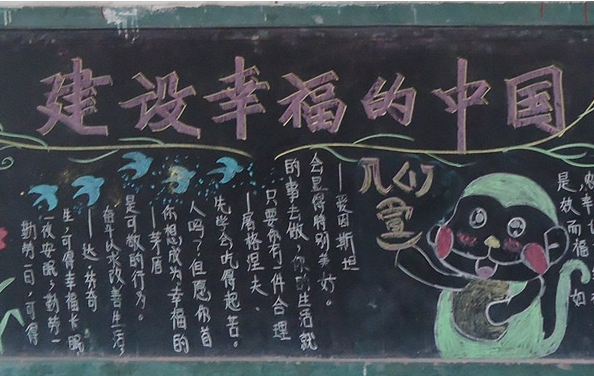 建设幸福的中国
勤劳一日，可得
一夜安眠；勤劳一
生，可得幸福长眠
——达·芬奇
奋斗以求改善生活，
是可敬的行为。
——茅盾
你想成为幸福的
人吗？但愿你首
先学会吃得起苦。
——屠格涅夫
只要你有一件合理
的事去做，你的生活就
会显得特别美好。
——爱因斯坦
是故而福
如